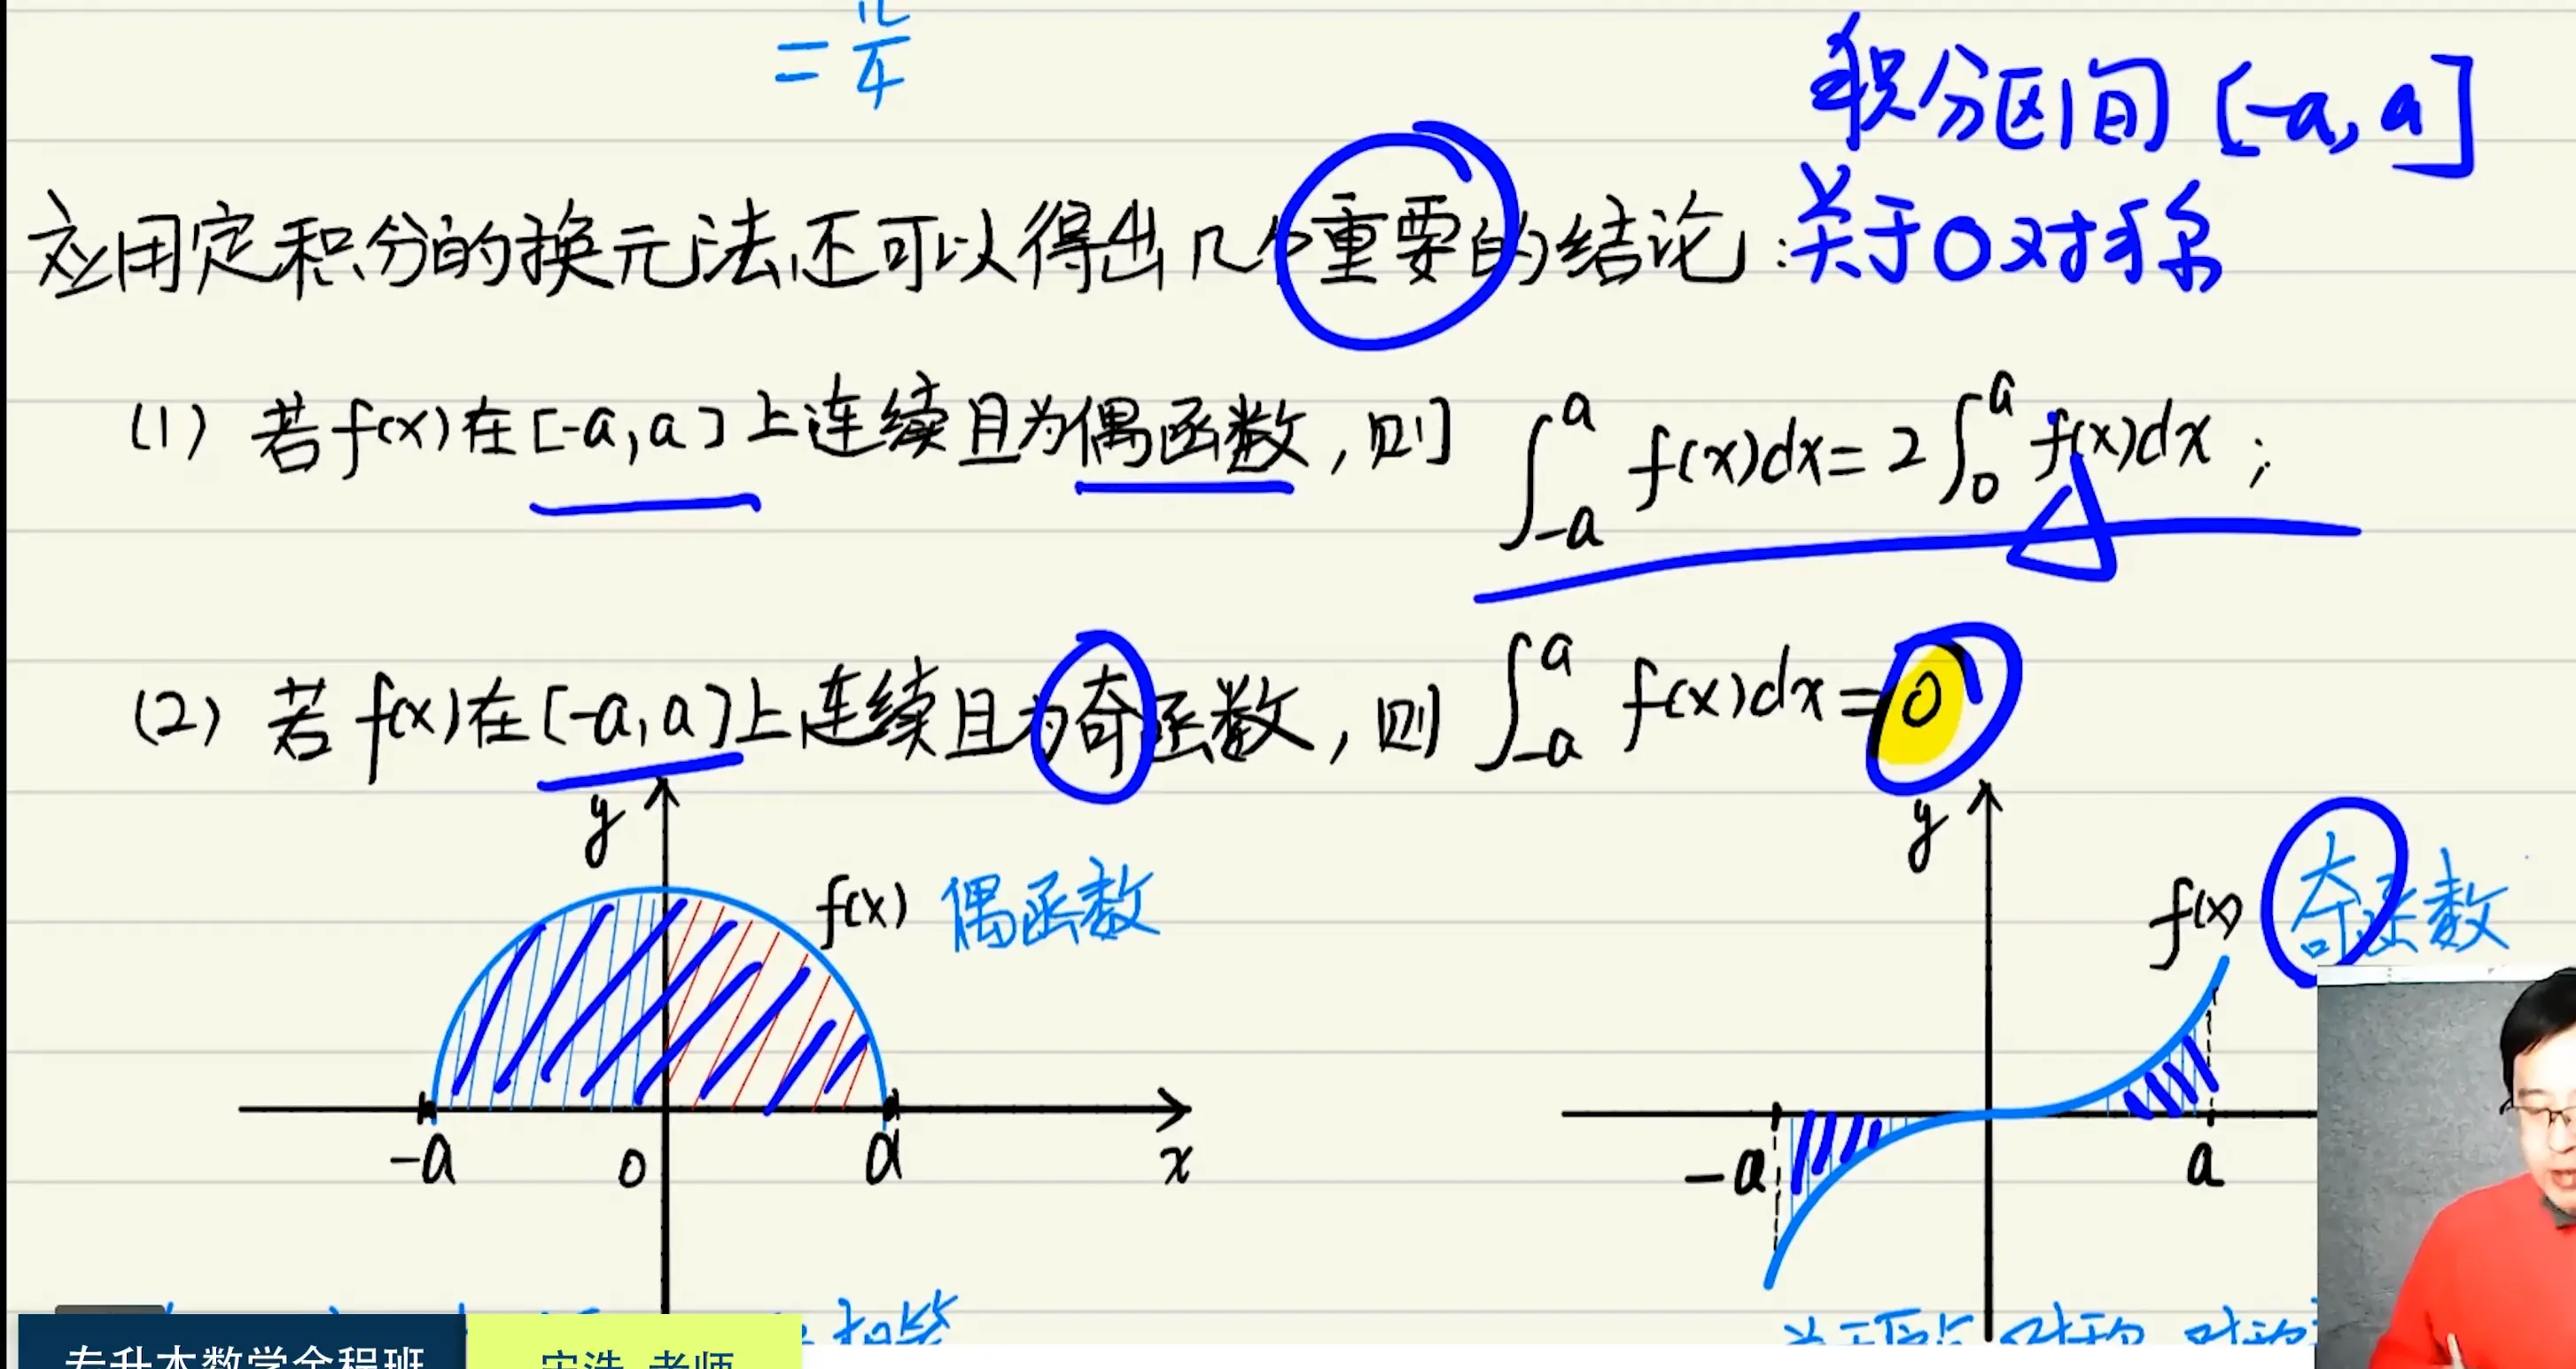 = π/4
积分区间 [-a, a]
应用定积分的换元法还可以得出几个重要的结论:
关于0对称
(1) 若f(x)在[-a,a]上连续且为偶函数,则 ∫_{-a}^{a} f(x)dx = 2∫_{0}^{a} f(x)dx ;
(2) 若f(x)在[-a,a]上连续且为奇函数,则 ∫_{-a}^{a} f(x)dx = 0
y
f(x) 偶函数
-a 0 a x
y
f(x) 奇函数
-a a
相等
关于原点对称
专升本数学全程班
宋浩 老师